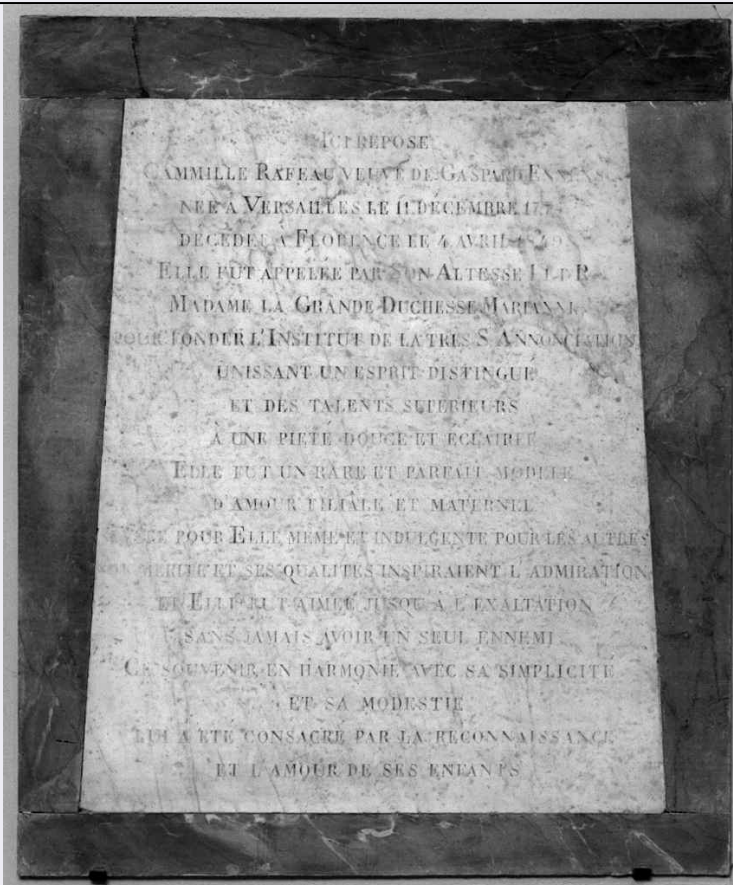 ICI REPOSE
CAMMILLE RAFEAU VEUVE DE GASPARD
NEE A VERSAILLES LE 11 DÉCEMBRE
DECEDEE A FLORENCE LE 4 AVRIL 1849
ELLE FUT APPELÉE PAR SON ALTESSE I ET R
MADAME LA GRANDE DUCHESSE MARIANNE
POUR FONDER L'INSTITUT DE LA TRES S ANNONCIATION
UNISSANT UN ESPRIT DISTINGUÉ
ET DES TALENTS SUPERIEURS
À UNE PIETÉ DOUCE ET ECLAIREE
ELLE FUT UN RARE ET PARFAIT MODELE
D'AMOUR FILIALE ET MATERNEL
POUR ELLE MEME ET INDULGENTE POUR LES AUTRES
SON MERITE ET SES QUALITES INSPIRAIENT L'ADMIRATION
ET ELLE FUT AIMÉE JUSQU'A L'EXALTATION
SANS JAMAIS AVOIR UN SEUL ENNEMI
CE SOUVENIR EN HARMONIE AVEC SA SIMPLICITÉ
ET SA MODESTIE
LUI A ETE CONSACRÉ PAR LA RECONNAISSANCE
ET L'AMOUR DE SES ENFANTS